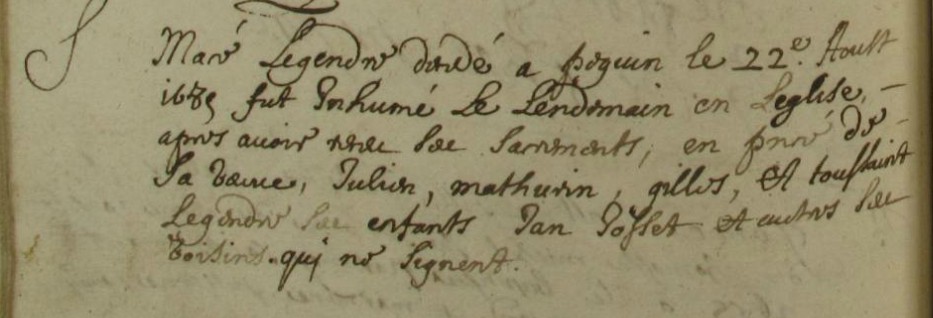 S
Maré Legendre décédé a poquin le 22e. Aoust
1689 fut Inhumé Le Lendemain en Leglise, -
apres avoir receu ses sacrements, en pnce de -
Sa veuve, Julien, mathurin, gilles, et toussaint
Legendre ses enfants Jan Josset et autres ses
voisins. qui ne signent.